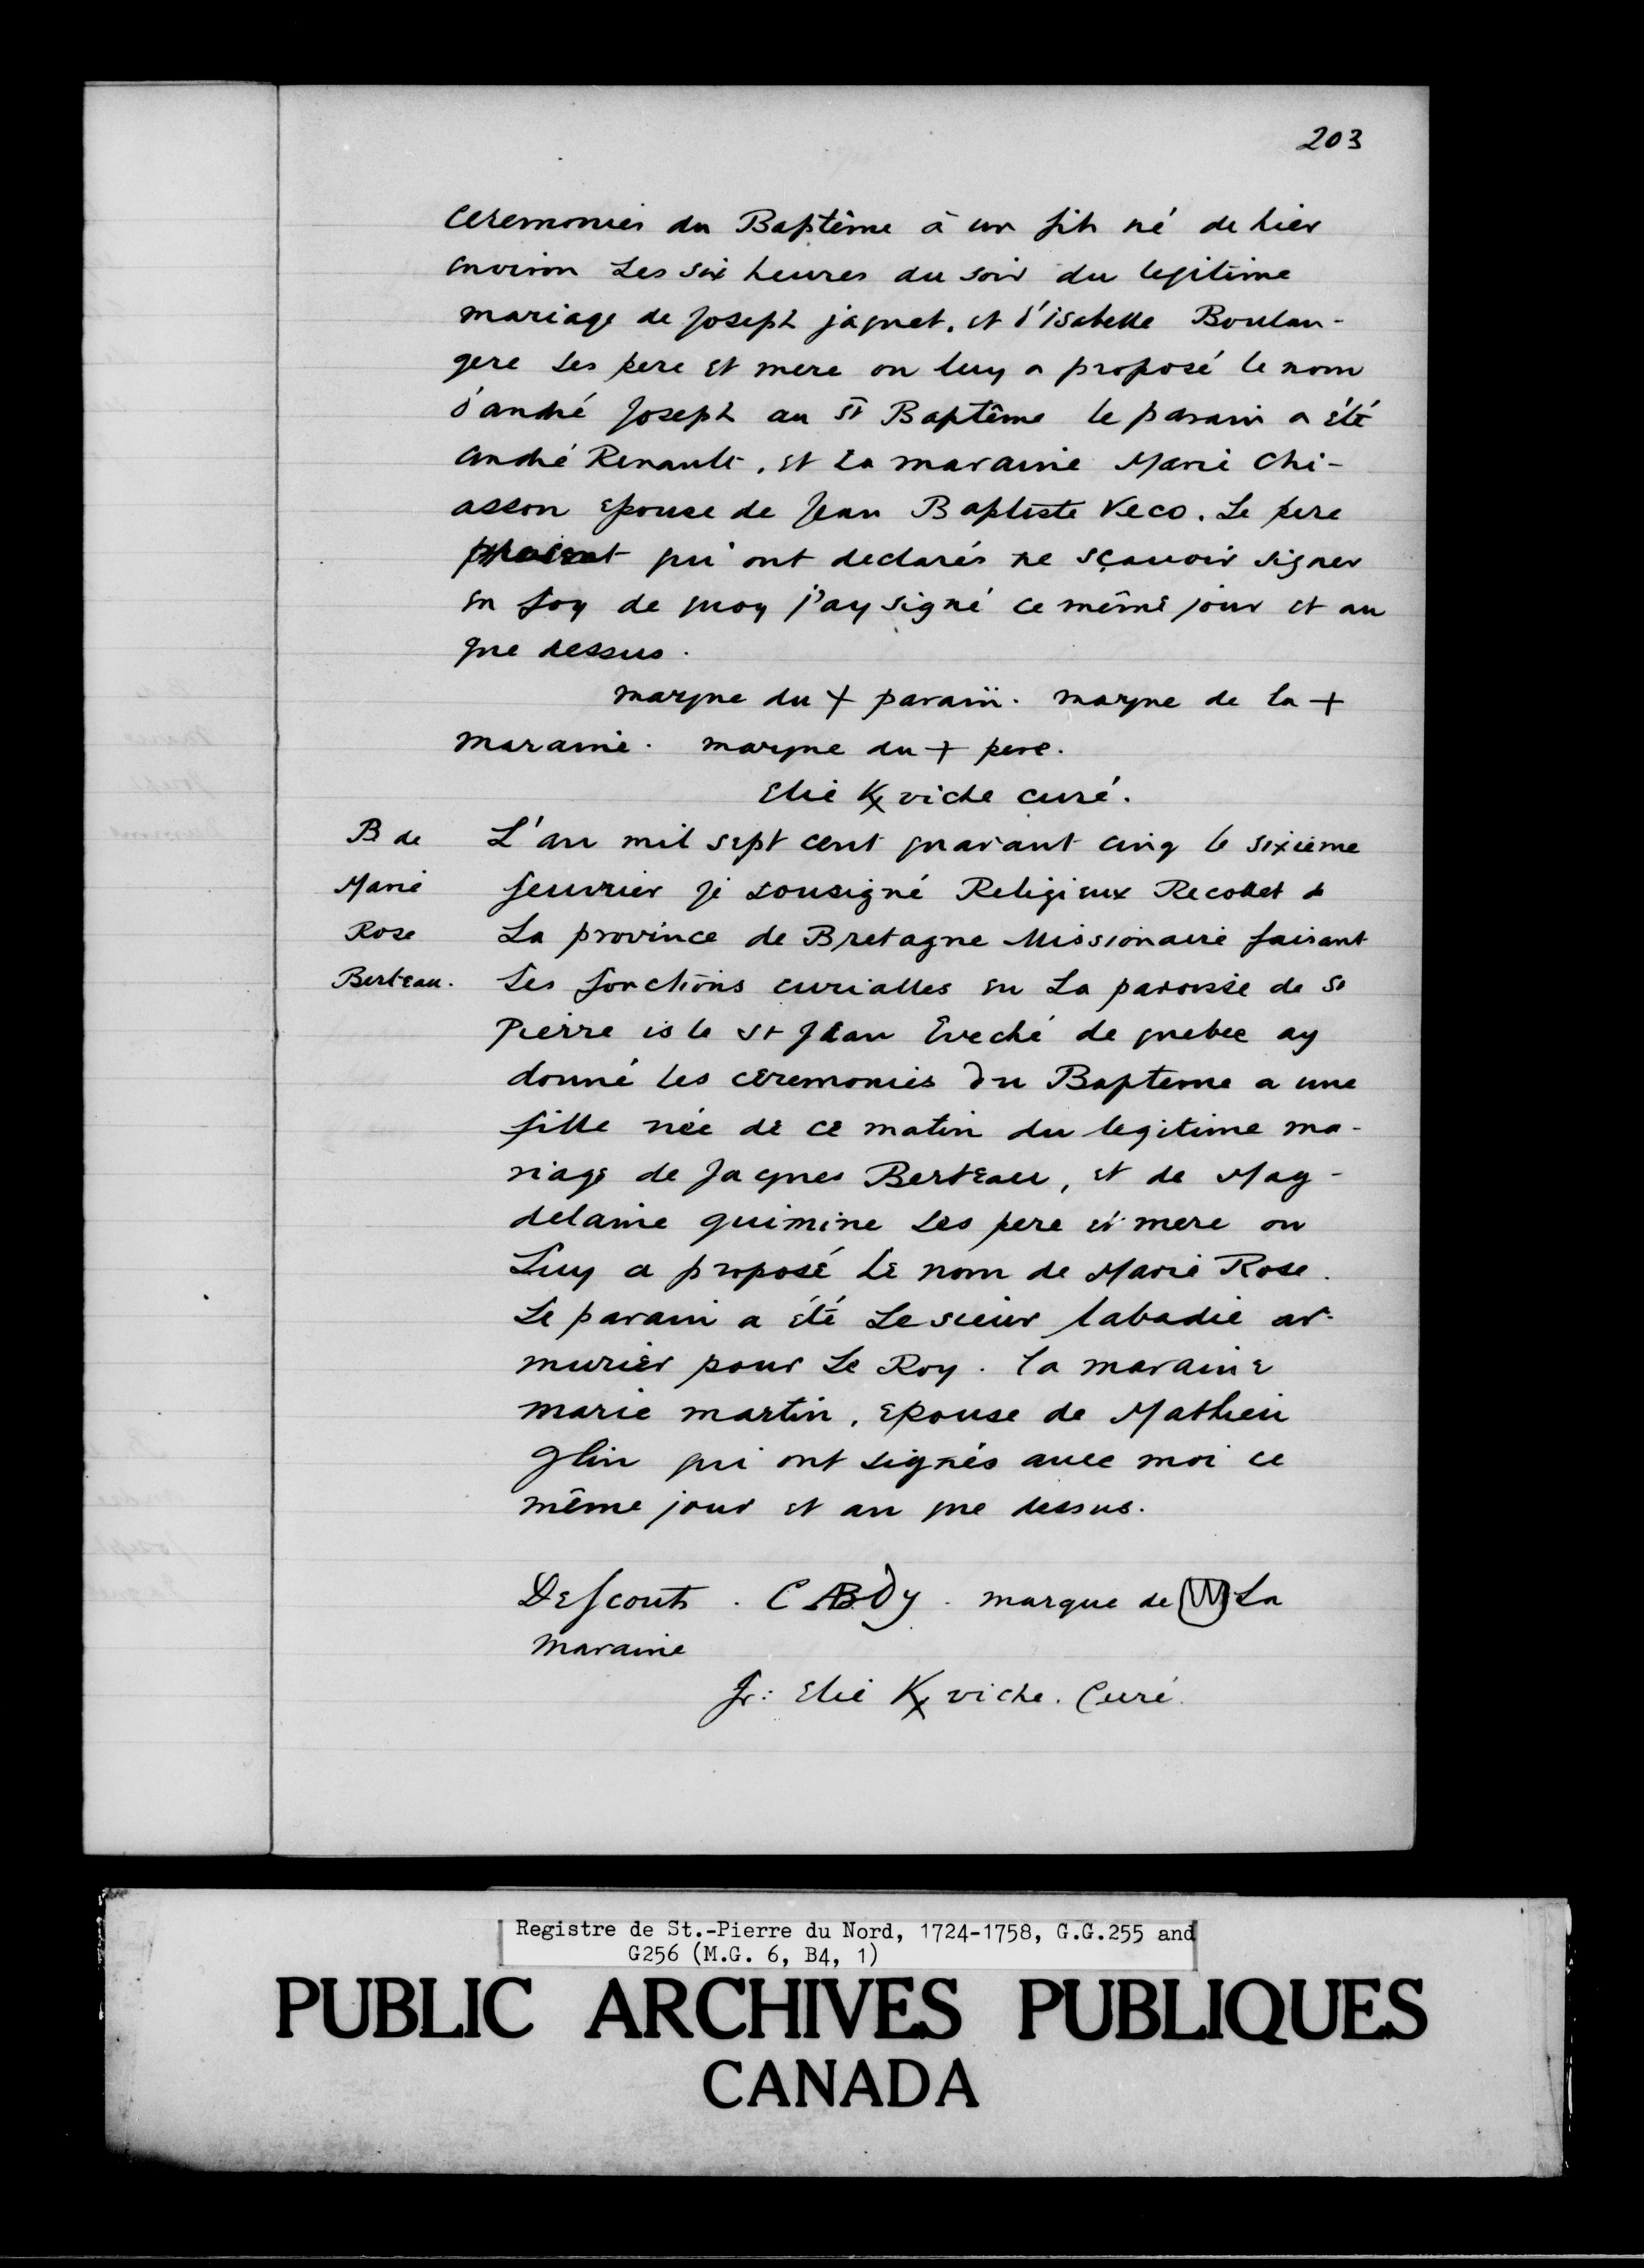 203
ceremonies du Baptême à un fils né de hier
environ Les six heures du soir du legitime
mariage de Joseph jaquet, et d'isabelle Boulan-
gere ses pere et mere on luy a proposé le nom
d'andré Joseph au St Baptême le parain a été
andré Renault, et La maraine Marie Chi-
asson epouse de Jean Baptiste Veco. Le pere
present qui ont declarés ne sçauoir signer
en foy de quoy j'ay signé ce même jour et an
que dessus.
marque du + parain. marque de la +
maraine. marque du + pere.
Elie K viche curé.
B de
Marie
Rose
Berteau.
L'an mil sept cent quarant cinq le sixieme
feuvrier je sousigné Religieux Recollet de
La province de Bretagne Missionaire faisant
Les fonctions curialles en La paroisse de St
Pierre isle St Jean Eveché de quebec ay
donné les ceremonies du Bapteme a une
fille née de ce matin du legitime ma-
riage de Jacques Berteau, et de Mag-
delaine quimine ses pere et mere on
Luy a proposé Le nom de Marie Rose.
Le parain a été Le sieur labadie ar-
murier pour Le Roy. la maraine
marie martin, epouse de Mathieu
glin qui ont signés avec moi ce
même jour et an que dessus.
Descouts. C ABDy. marque de La
maraine
fr: Elie K viche. Curé.
Registre de St.-Pierre du Nord, 1724-1758, G.G.255 and
G256 (M.G. 6, B4, 1)
PUBLIC ARCHIVES PUBLIQUES
CANADA